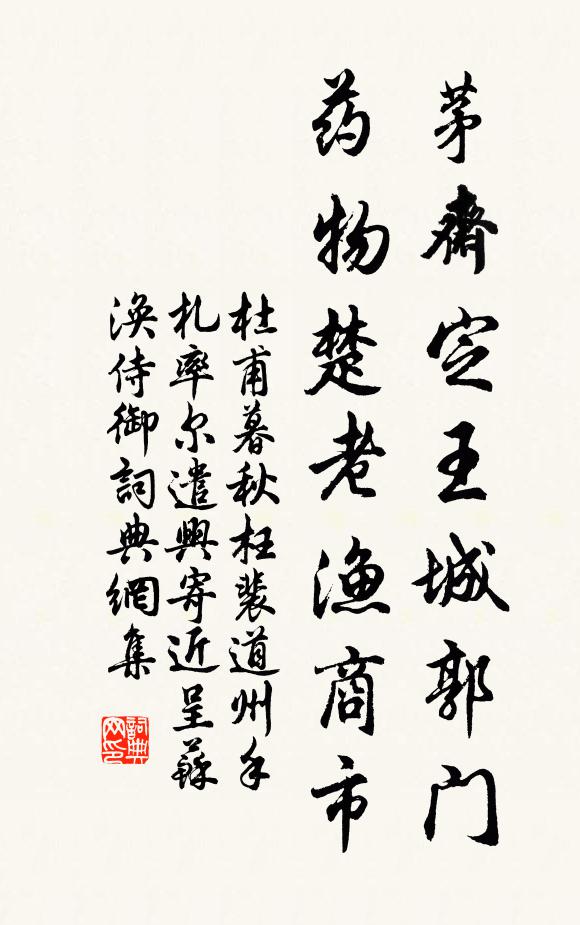 茅齋定王城郭门
药物楚老渔商市
杜甫暮秋枉裴道州手
札率尔遣興寄近呈蘇
涣侍御詞典網集
詞典
网印